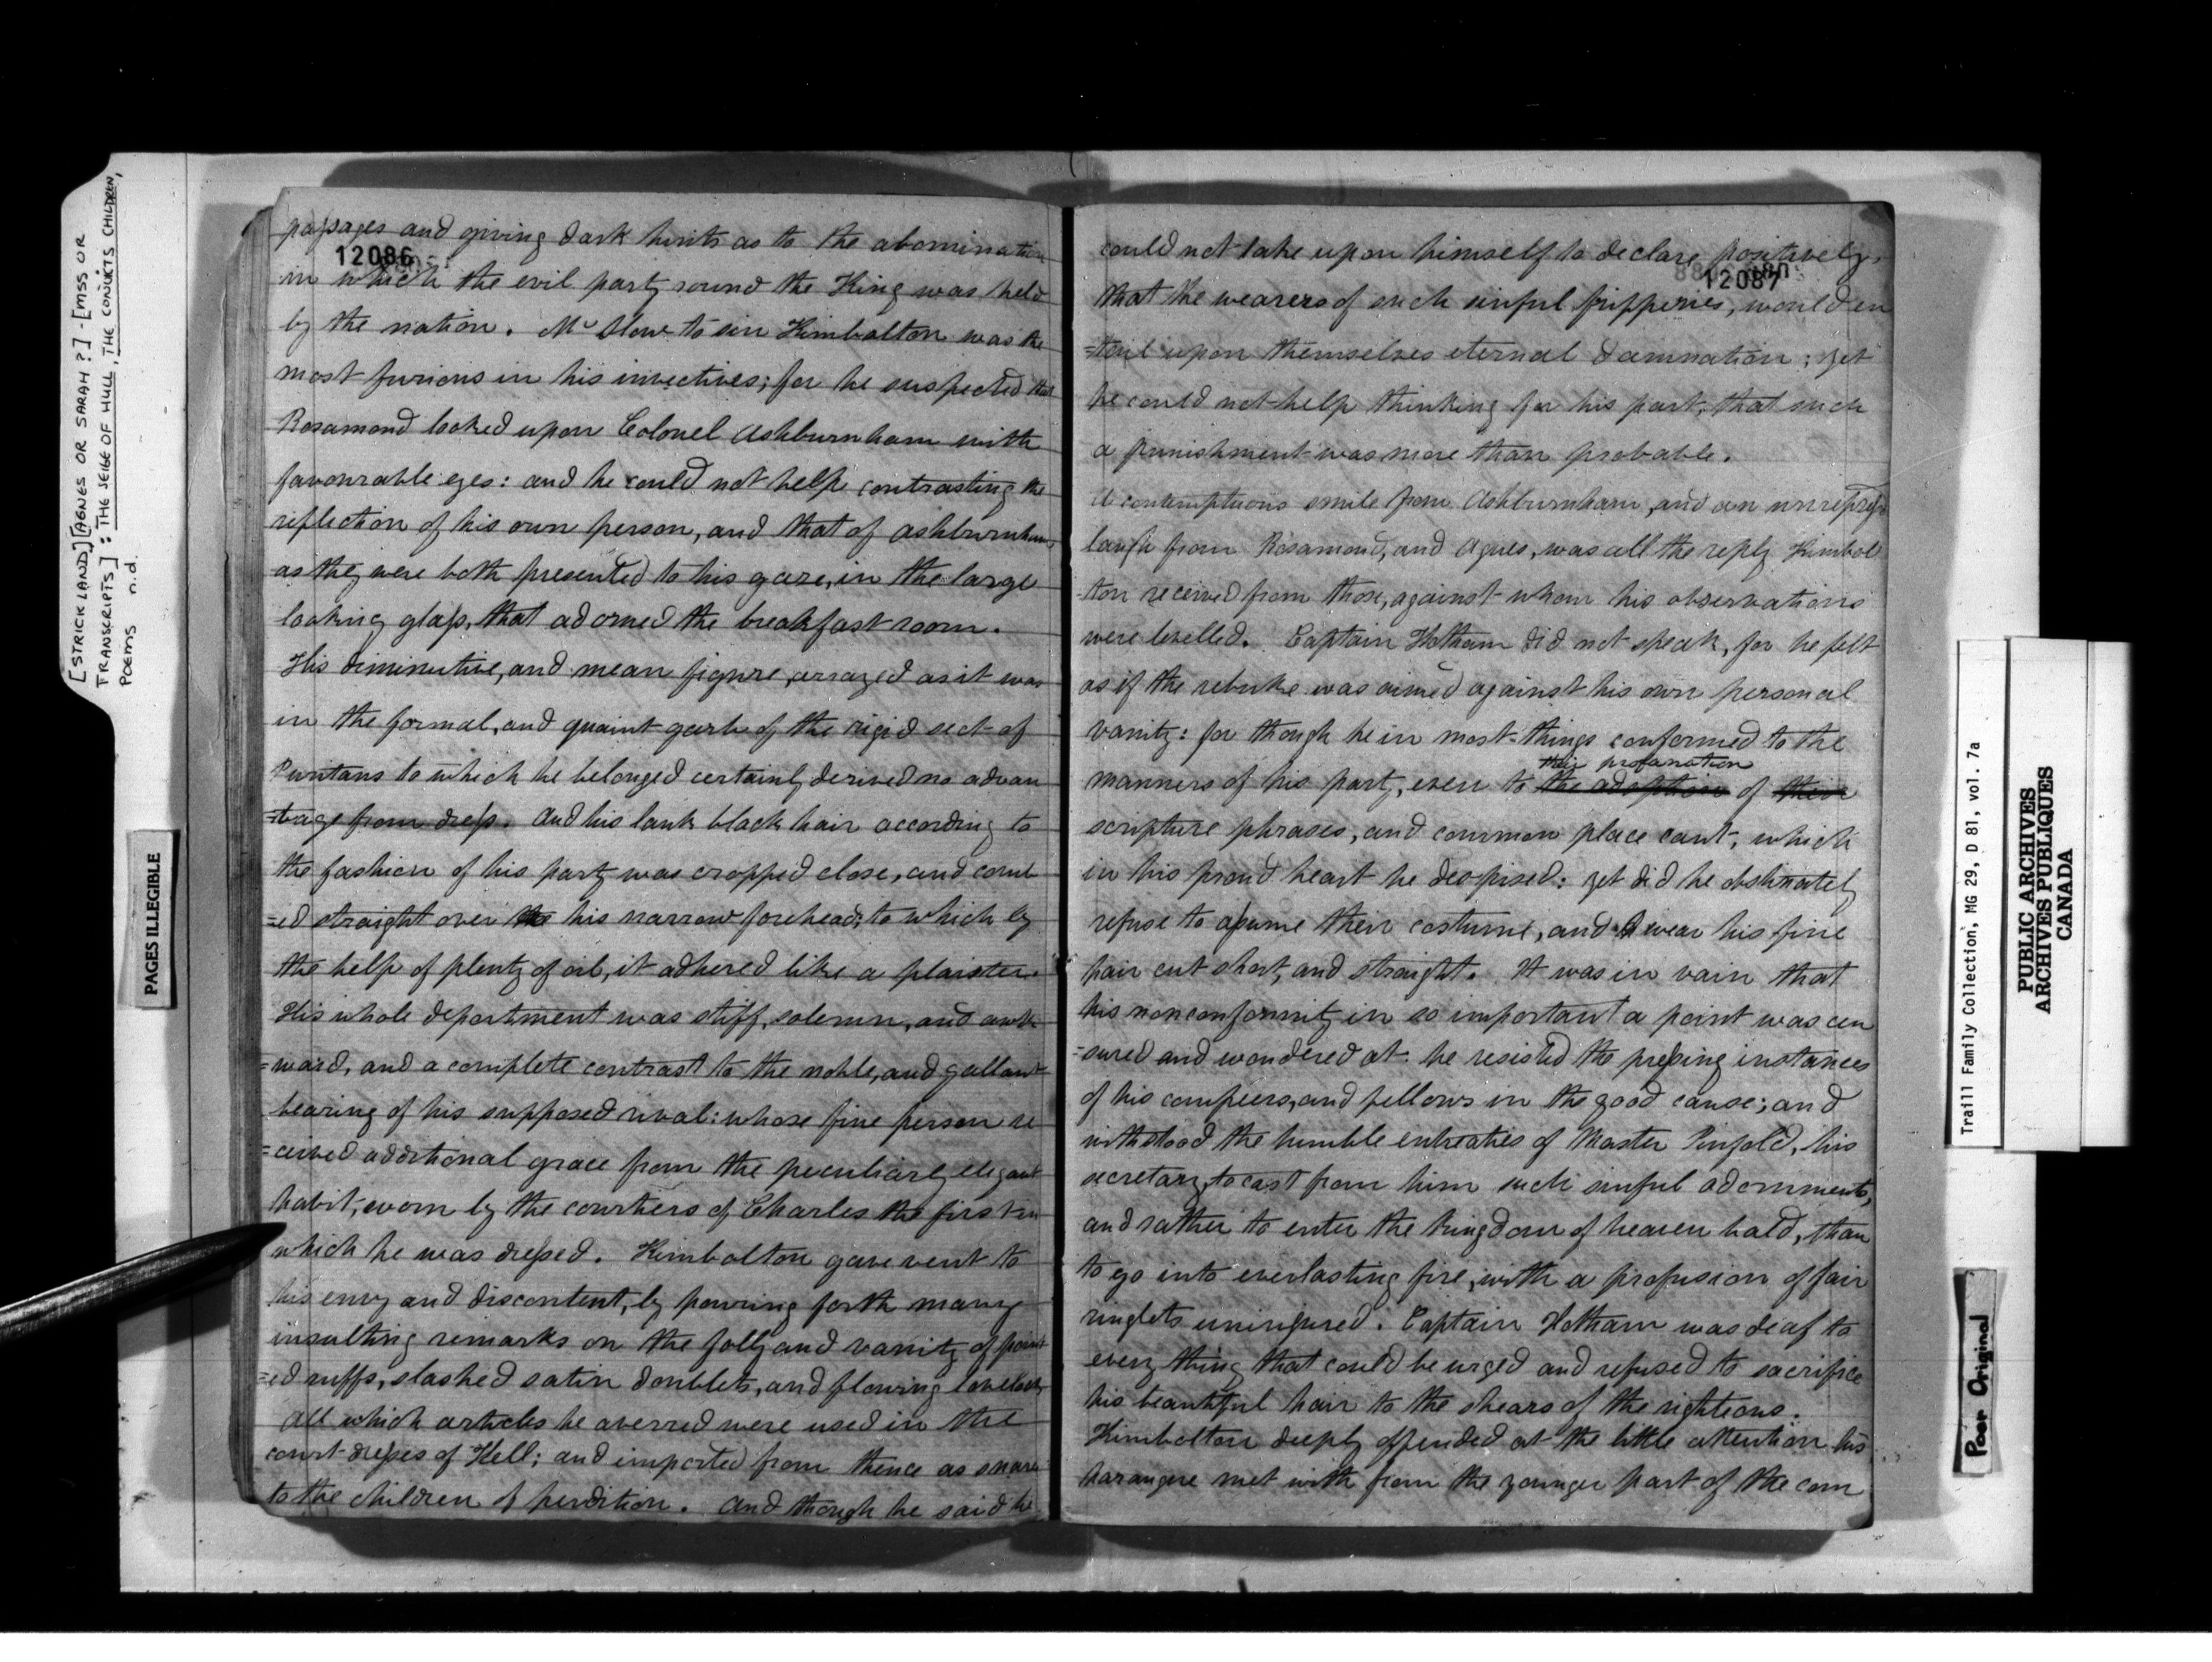 [STRICKLAND] [AGNES OR SARAH ?] - [MSS OR
TRANSCRIPTS] : THE SEIGE OF HULL, THE CONVICTS CHILDREN,
POEMS n.d.
PAGES ILLEGIBLE
passages and giving dark hints as to the abomination
12086
in which the evil party round the King was held
by the nation. Mr Slow to sin Kimbolton was the
most furious in his invectives; for he suspected that
Rosamond looked upon Colonel Ashburnham with
favourable eyes: and he could not help contrasting the
reflection of his own person, and that of Ashburnham,
as they were both presented to his gaze, in the large
looking glass, that adorned the breakfast room.
His diminutive, and mean figure, arrayed as it was
in the formal, and quaint garb of the rigid sect of
Puritans to which he belonged certainly derived no advan
=tage from dress. And his lank black hair according to
the fashion of his party was cropped close, and comb
=ed straight over the his narrow forehead; to which by
the help of plenty of oil, it adhered like a plaister.
His whole department was stiff, solemn, and awk
=ward, and a complete contrast to the noble, and gallant
bearing of his supposed rival: whose fine person re
=ceived additional grace from the peculiarly elegant
habit, worn by the courtiers of Charles the first in
which he was dressed. Kimbolton gave vent to
his envy and discontent, by pouring forth many
insulting remarks on the folly and vanity of point
=ed ruffs, slashed satin doublets, and flowing lovelocks
All which articles he averred were used in the
court dresses of Hell; and imported from thence as snares
to the children of perdition. And though he said he
could not take upon himself to declare positively,
12087
that the wearers of such sinful fripperies, would en
=tail upon themselves eternal damnation; yet
he could not help thinking for his part, that such
a punishment was more than probable.
A contemptuous smile from Ashburnham, and an unrepress
laugh from Rosamond, and Agnes, was all the reply Kimbol
ton received from those, against whom his observations
were levelled. Captain Hotham did not speak, for he felt
as if the rebuke was aimed against his own personal
vanity: for though he in most things conformed to the
their profanation
manners of his party, even to the adoption of their
scripture phrases, and common place cant, which
in his proud heart he despised: yet did he obstinately
refuse to assume their costume, and wear his fine
hair cut short, and straight. It was in vain that
his nonconformity in so important a point was cen
=sured and wondered at. he resisted the pressing instances
of his compeers, and fellows in the good cause; and
withstood the humble entreaties of Master Pinfold, his
secretary, to cast from him such sinful adornments,
and rather to enter the kingdom of heaven bald, than
to go into everlasting fire, with a profusion of fair
ringlets uninjured. Captain Hotham was deaf to
every thing that could be urged and refused to sacrifice
his beautiful hair to the shears of the righteous.
Kimbolton deeply offended at the little attention his
harangue met with from the younger part of the com
Traill Family Collection, MG 29, D 81, vol. 7a
PUBLIC ARCHIVES
ARCHIVES PUBLIQUES
CANADA
Poor Original